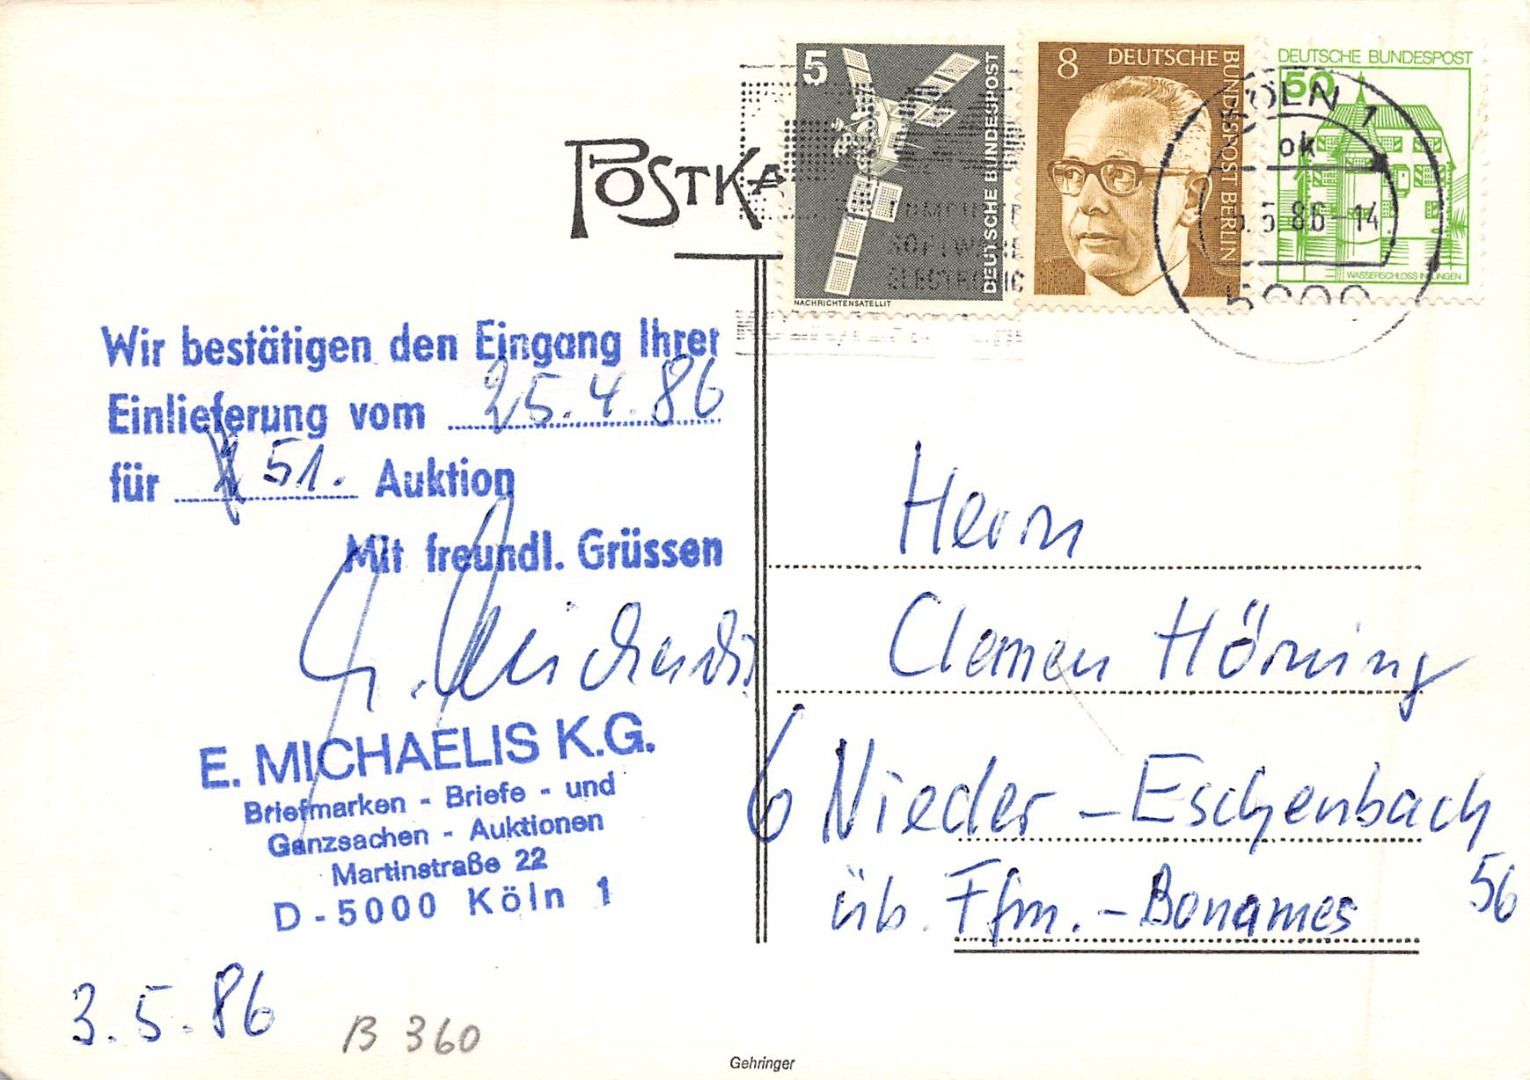 5
DEUTSCHE BUNDESPOST
NACHRICHTENSATELLIT
8 DEUTSCHE
BUNDESPOST BERLIN
DEUTSCHE BUNDESPOST
50
WASSERSCHLOSS INZLINGEN
KÖLN 1
ok
5.86-14
5000
COMPUTER
SOFTWARE
ELECTRONIC
POSTKA
Wir bestätigen den Eingang Ihrer
Einlieferung vom 25.4.86
für 51. Auktion
Mit freundl. Grüssen
E. MICHAELIS K.G.
Briefmarken - Briefe - und
Ganzsachen - Auktionen
Martinstraße 22
D - 5000 Köln 1
3.5.86
B 360
Herrn
Clemen Hörning
6 Nieder-Eschenbach
56
üb. Ffm.-Bonames
Gehringer